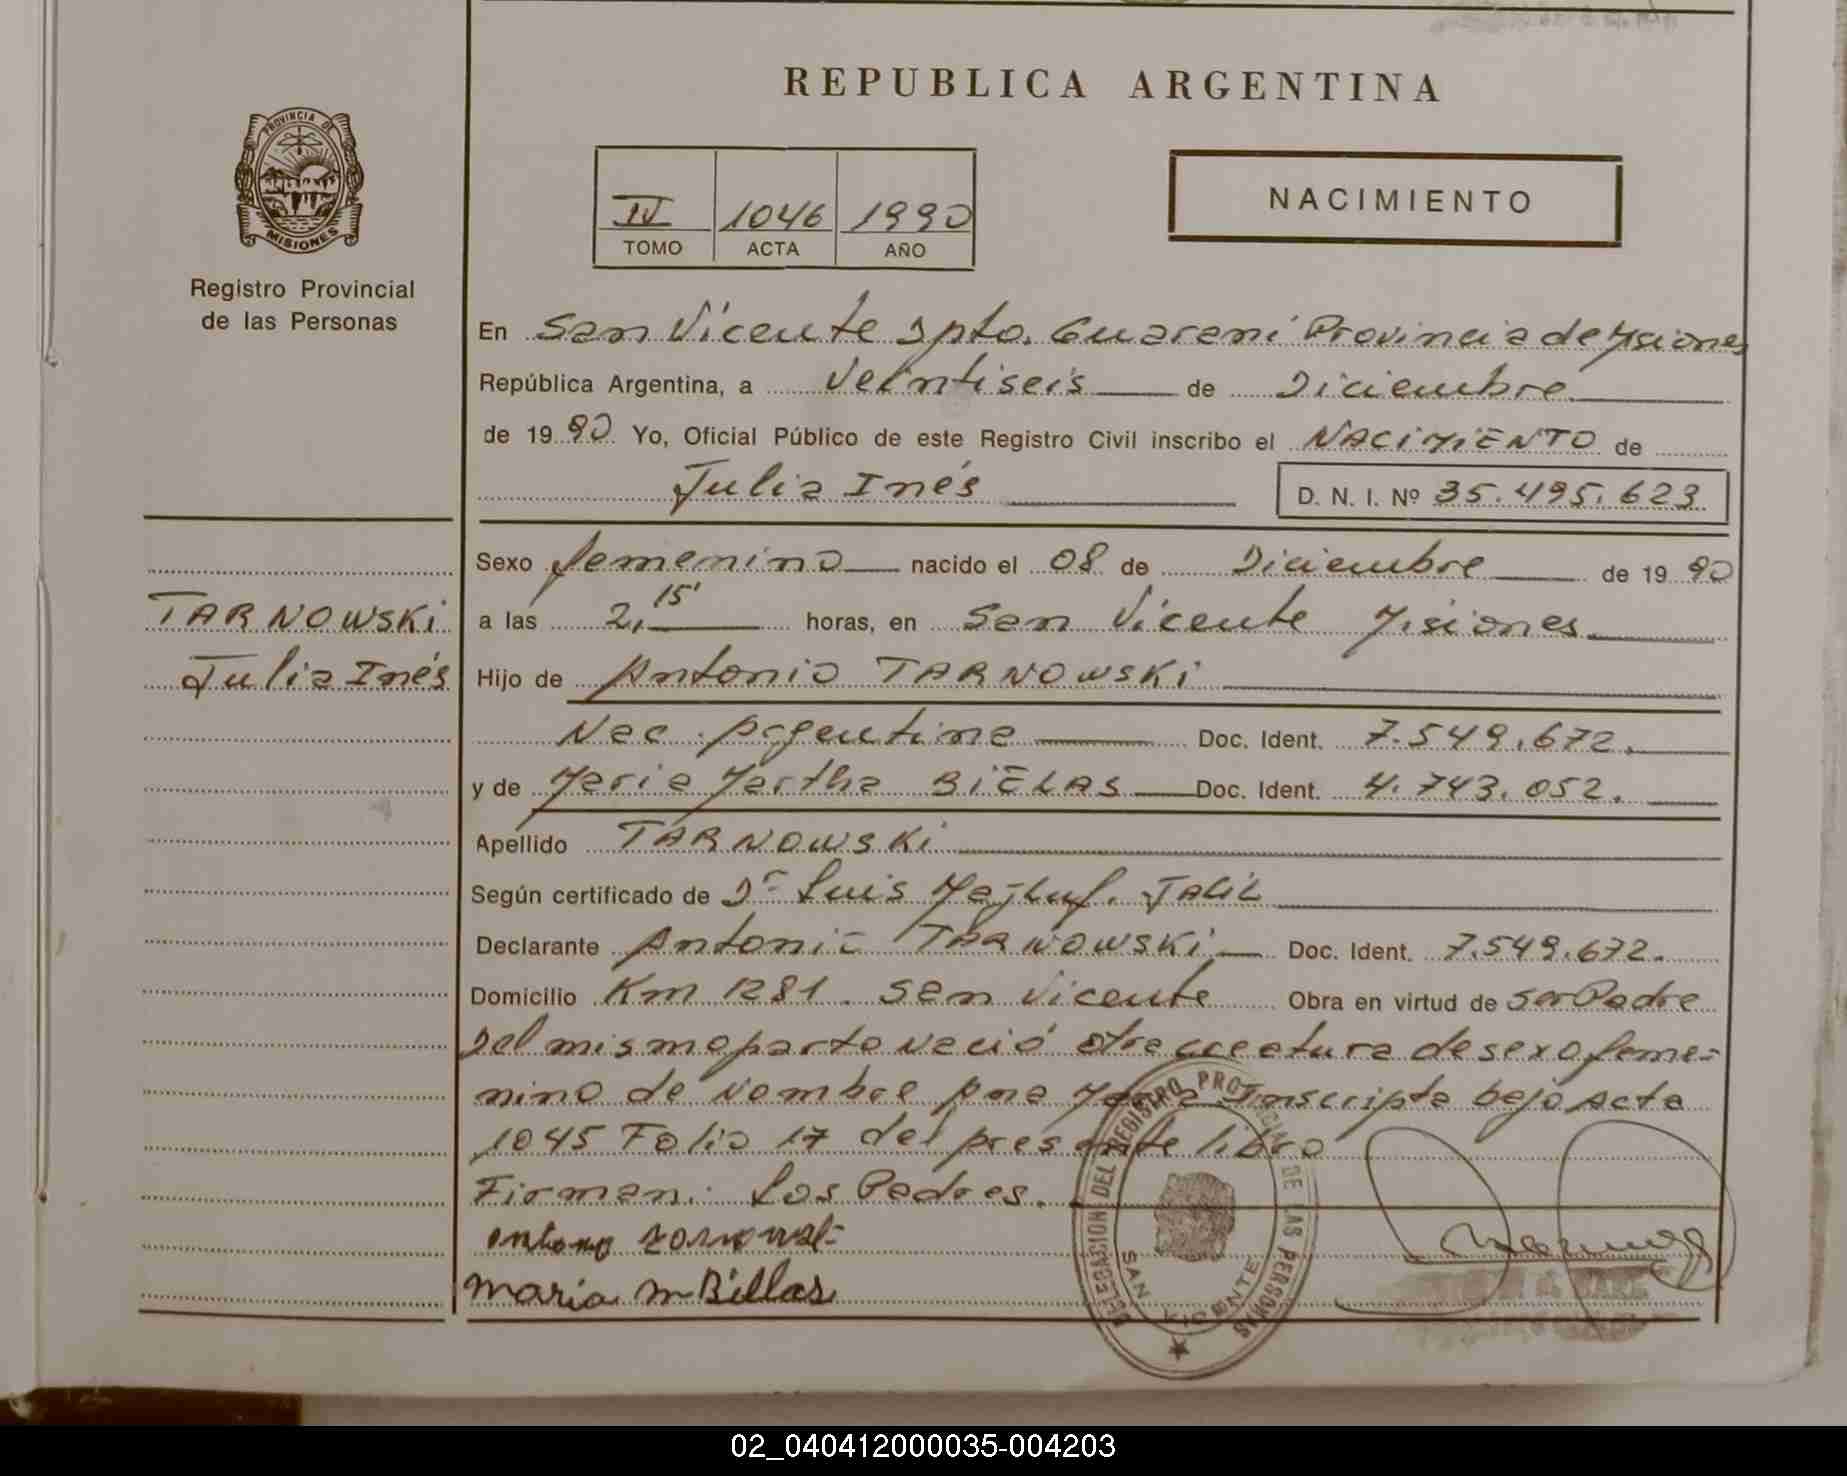 REPUBLICA ARGENTINA
PROVINCIA DE
MISIONES
Registro Provincial
de las Personas
IV 1046 1990
TOMO ACTA AÑO
NACIMIENTO
En San Vicente Dpto. Guaraní Provincia de Misiones
República Argentina, a Veintiseis de Diciembre
de 1990 Yo, Oficial Público de este Registro Civil inscribo el NACIMIENTO de
Julia Inés D. N. I. Nº 35.495.623
TARNOWSKI
Julia Inés
Sexo femenino nacido el 08 de Diciembre de 1990
a las 2,15' horas, en San Vicente Misiones
Hijo de Antonio TARNOWSKI
Nac. Argentina Doc. Ident. 7.549.672.
y de Maria Martha BIELAS Doc. Ident. 4.743.052.
Apellido TARNOWSKI
Según certificado de Dr Luis JALIL
Declarante Antonio TARNOWSKI Doc. Ident. 7.549.672.
Domicilio Km 1281. San Vicente Obra en virtud de Ser Padre
Del mismo parto nació otra creatura de sexo feme=
nino de nombre Ana Inscripta bajo Acta
1045 Folio 17 del presente libro
Firman: Los Padres.
maria m Billas
DELEGACION DEL REGISTRO PROVINCIAL DE LAS PERSONAS
SAN VICENTE
02_040412000035-004203